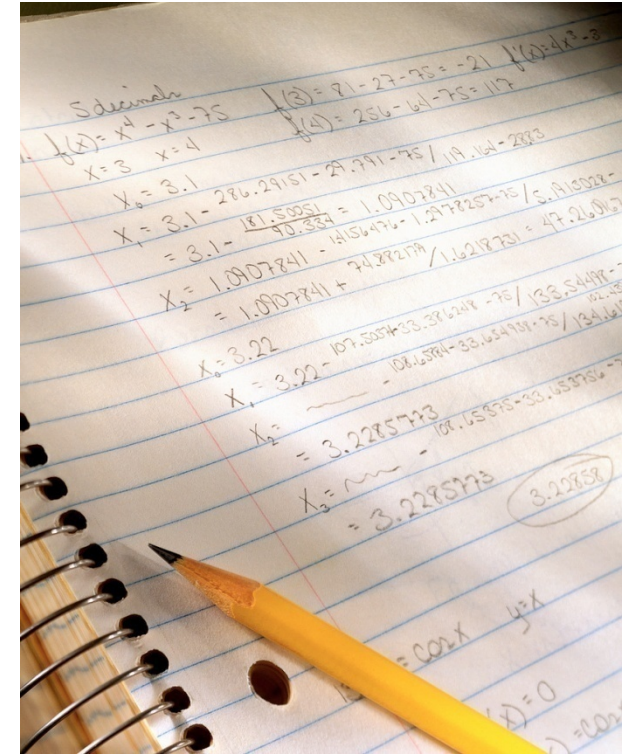 5 decimals
1. f(x) = x⁴ - x³ - 75 f(3) = 81 - 27 - 75 = -21 f'(x) = 4x³ - 3
x = 3 x = 4 f(4) = 256 - 64 - 75 = 117
X₀ = 3.1
X₁ = 3.1 - 286.29151 - 29.791 - 75 / 119.164 - 2883
= 3.1 - 181.50051 / 90.334 = 1.0907841
X₂ = 1.0907841 - 1.4156476 - 1.2978257 - 75 / 5.1910028 -
= 1.0907841 + 74.882179 / 1.6218731 = 47.260967
X₀ = 3.22
X₁ = 3.22 - 107.5034 - 33.386248 - 75 / 133.54498 -
X₂ = - 108.6584 - 33.654938 - 75 / 134.61
= 3.2285773
X₃ = - 108.65375 - 33.653756 - 7
= 3.2285773 3.22858
= cosx y=x
(x) = 0
) = cos